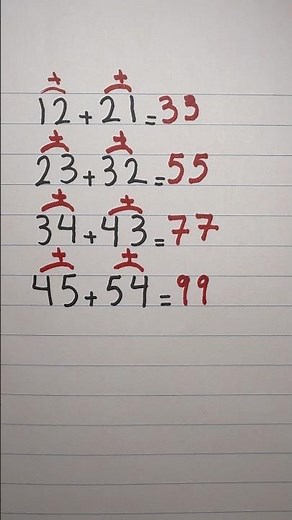 + +
12+21=33
+ +
23+32=55
+ +
34+43=77
+ +
45+54=99